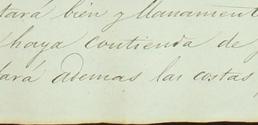 tará bien y llanament
haya contienda de p
tará ademas las costas